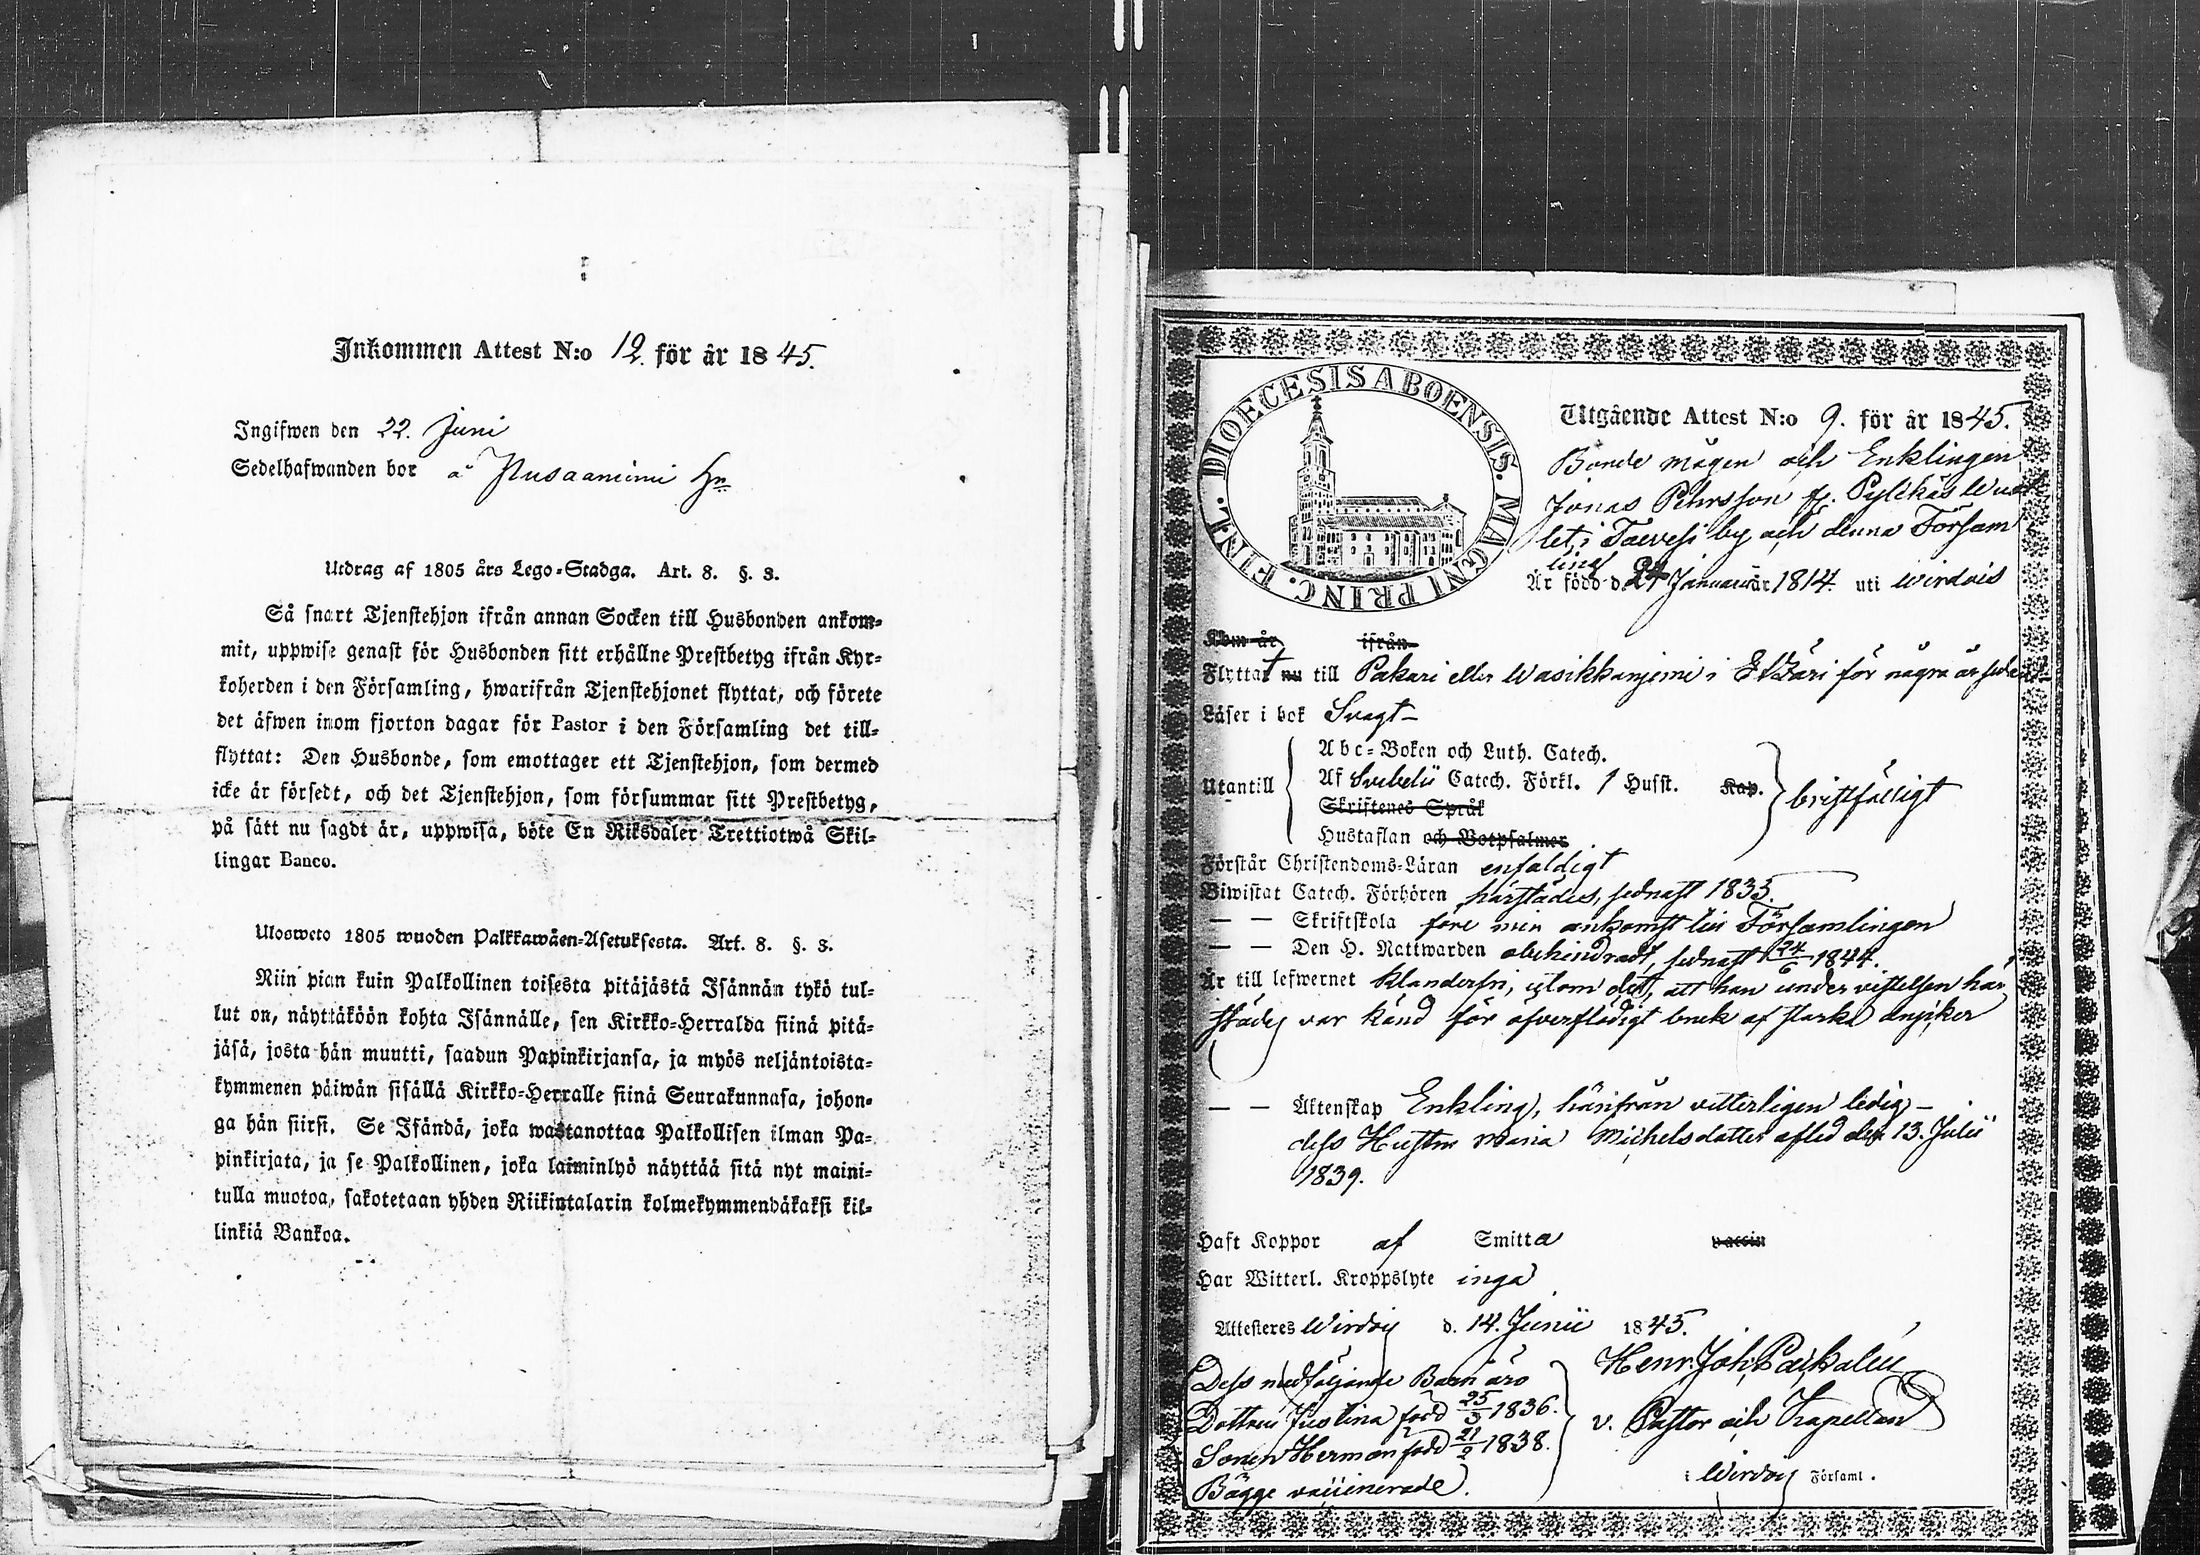 Inkommen Attest N:o 12. för år 1845.
Ingifwen den 22. Juni
Sedelhafwanden bor å Pusaanimi Hn
Utdrag af 1805 års Lego-Stadga. Art. 8. §. 3.
Så snart Tjenstehjon ifrån annan Socken till Husbonden ankom-
mit, uppwise genast för Husbonden sitt erhållne Prestbetyg ifrån Kyr-
koherden i den Församling, hwarifrån Tjenstehjonet flyttat, och förete
det äfwen inom fjorton dagar för Pastor i den Församling det till-
flyttat: Den Husbonde, som emottager ett Tjenstehjon, som dermed
icke är försedt, och det Tjenstehjon, som försummar sitt Prestbetyg,
på sätt nu sagdt är, uppwisa, böte En Riksdaler Trettiotwå Skil-
lingar Banco.
Ulosweto 1805 wuoden Palkkawäen-Asetuksesta. Art. 8. §. 3.
Niin pian kuin Palkollinen toisesta pitäjästä Isännän tykö tul-
lut on, näyttäköön kohta Isännälle, sen Kirkko-Herralda siinä pitä-
jäsä, josta hän muutti, saadun Papinkirjansa, ja myös neljäntoista-
kymmenen päiwän sisällä Kirkko-Herralle siinä Seurakunnasa, johon-
ga hän siirsi. Se Isändä, joka wastanottaa Palkollisen ilman Pa-
pinkirjata, ja se Palkollinen, joka laiminlyö näyttää sitä nyt maini-
tulla muotoa, sakotetaan yhden Riikintalarin kolmekymmendäkaksi kil-
linkiä Bankoa.
DIOECESIS ABOENSIS. MAGNI PRINC. FINL.
Utgående Attest N:o 9. för år 1845.
Bonde mågen och Enklingen
Jonas Pehrsson fr. Pylkäs
let i Toevesi by och denna Församl
ling
Är född d. 24 Januari år 1814. uti Wirdois
Kom år ifrån
Flyttat nu till Pakari eller Wasikkanjemi i Etzäri för några år sedan
Läser i bok Svagt
Utantill
Abc-Boken och Luth. Catech.
Af Svebelii Catech. Förkl. 1 Husst. Kap.
Skriftenes Språk
Hustaflan och Botpsalmer
bristfälligt
Förstår Christendoms-Läran enfaldigt
Biwistat Catech. Förhören härstädes, sednast 1833.
— — Skriftskola före min ankomst till Församlingen
— — Den H. Nattwarden obehindradt, sednast 24/6 1844.
Är till lefwernet klanderfri, utom det, att han under vistelsen här
städes var känd för öfverflödigt bruk af starka drycker
— — Äktenskap Enkling, härifrån vitterligen ledig —
dess Hustru Maria Michelsdotter afled den 13. Julii
1839.
Haft Koppor af Smitta vaccin
Har Witterl. Kroppslyte inga
Attesteres Wirdois d. 14. Junii 1845.
Henr. Joh.
v. Pastor och Kapellan
i Wirdois Församl.
Dess medföljande Barn äro
Dottren Justina född 25/3 1836.
Sonen Herman född 21/2 1838.
Bägge vaccinerade.